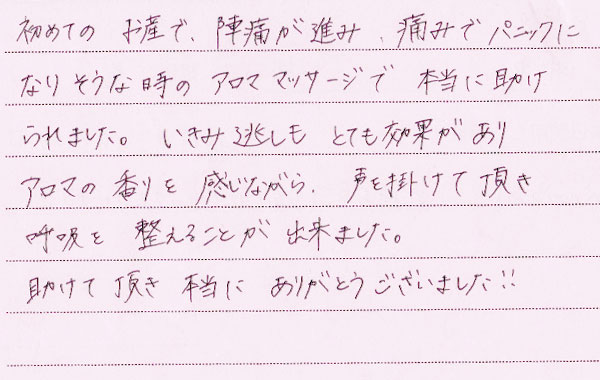 初めての お産で、陣痛が進み、痛みでパニックに
なりそうな時の アロママッサージで 本当に助け
られました。いきみ逃しも とても効果があり
アロマの香りを 感じながら、声を掛けて頂き
呼吸を 整えることが 出来ました。
助けて頂き 本当に ありがとうございました!!